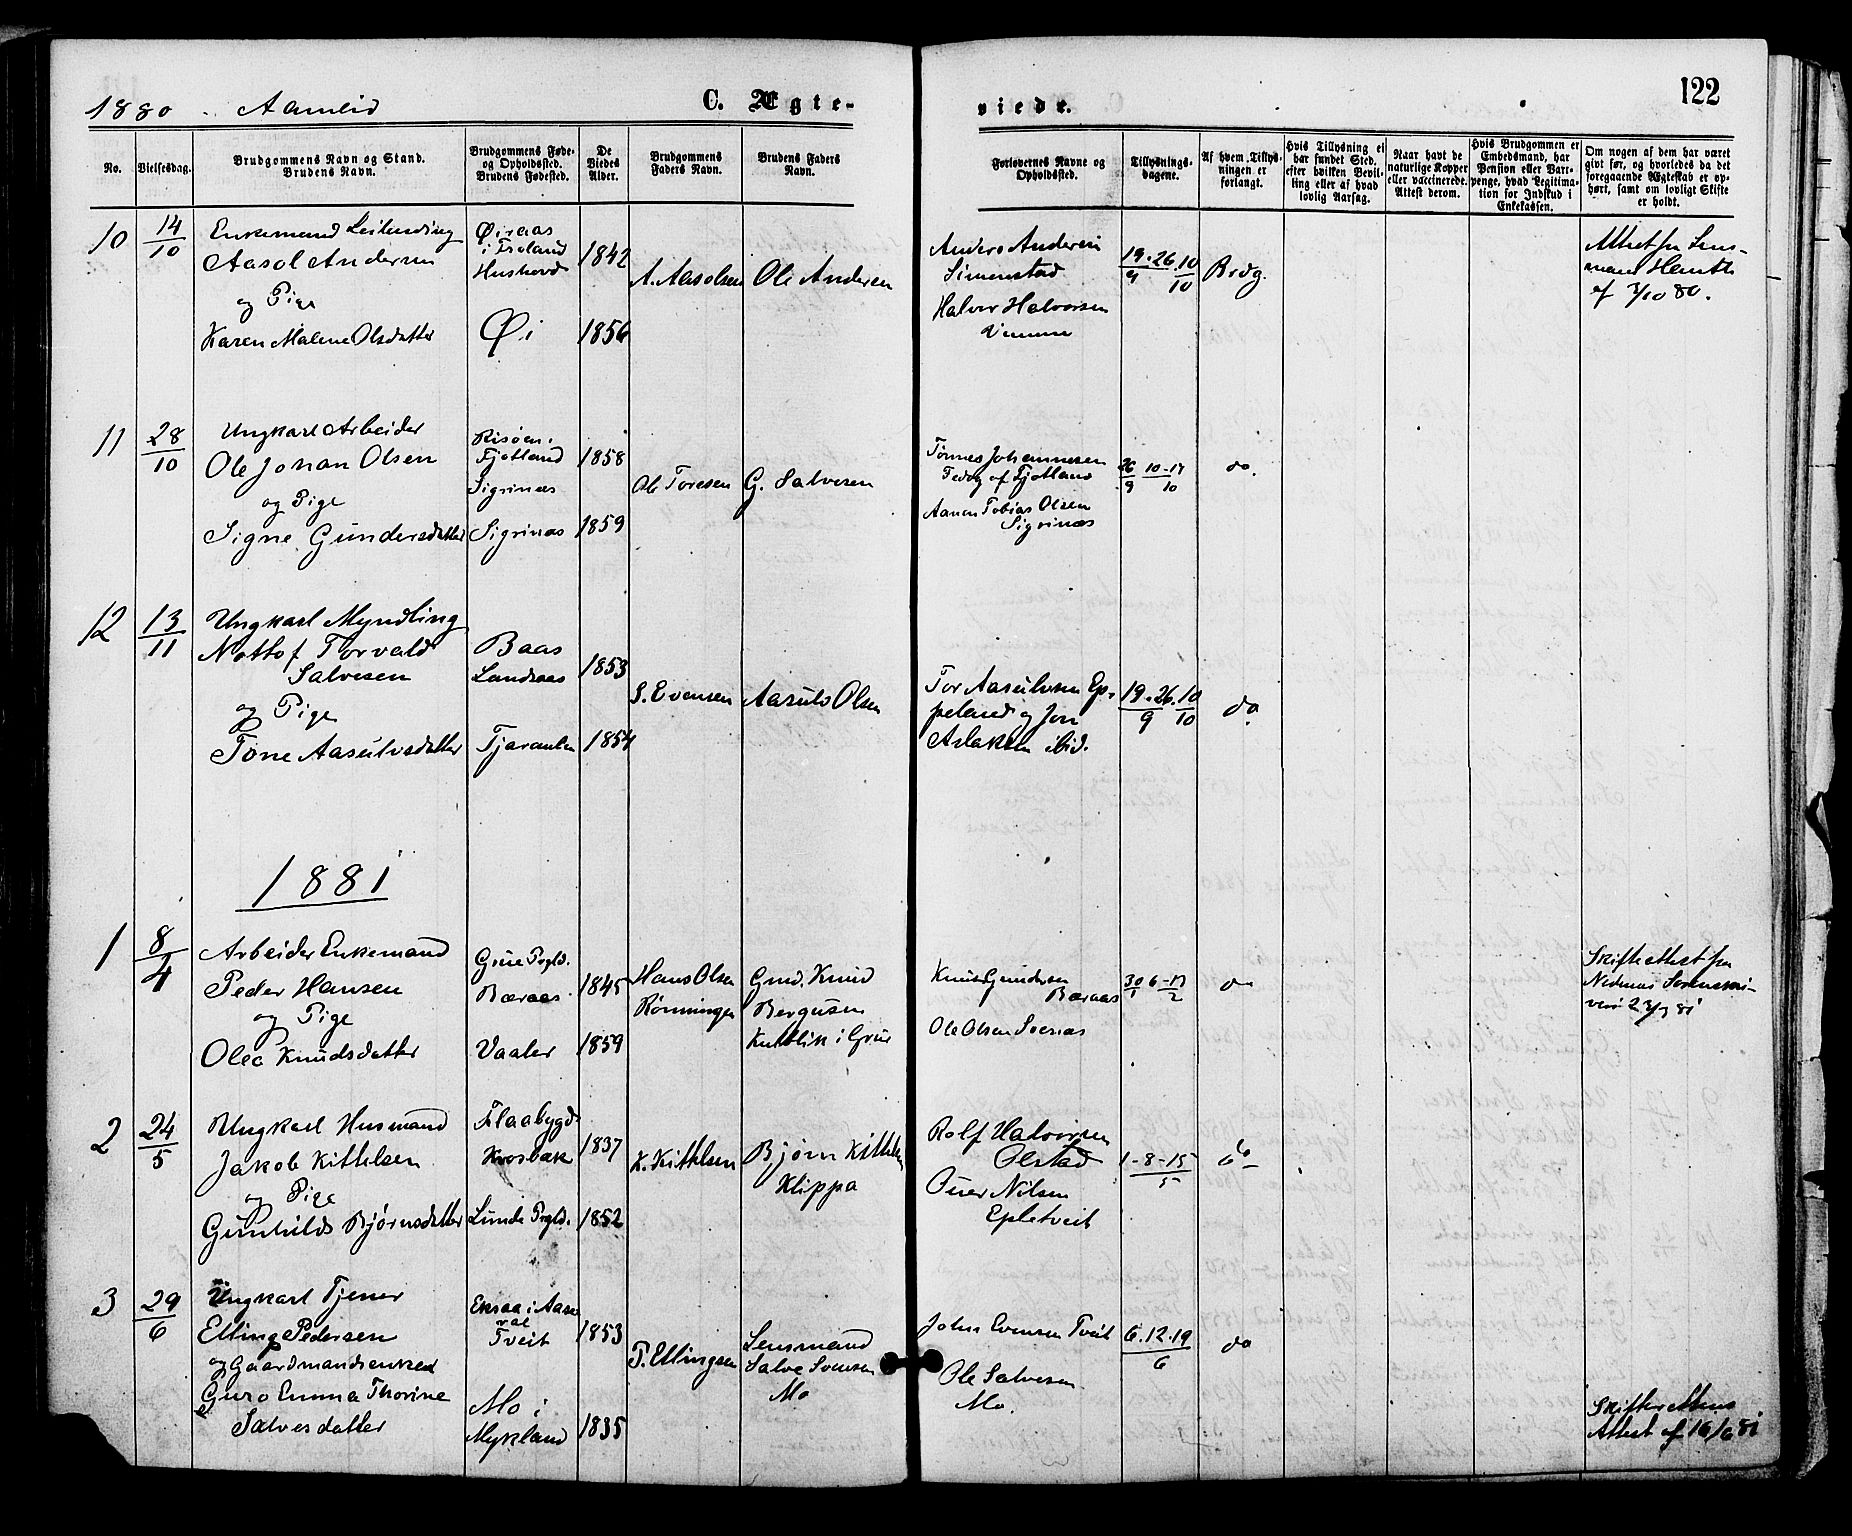 1880. Aamlid
C. Ægte-
viede.
122
No.
Vielsesdag.
Brudgommens Navn og Stand.
Brudens Navn.
Brudgommens Føde-
og Opholdssted.
Brudens Fødested.
De
Viedes
Alder.
Brudgommens
Faders Navn.
Brudens Faders
Navn.
Forlovernes Navne og
Opholdssted.
Tillysnings-
dagene.
Af hvem Tillys-
ningen er
forlangt.
Hvis Tillysning ei
har fundet Sted,
efter hvilken Bevil-
ling eller af hvad
lovlig Aarsag.
Naar havt de
naturlige Kopper
eller vaccinerede.
Attest derom.
Hvis Brudgommen er
Embedsmand, har
Pension eller Vart-
penge, hvad Legitima-
tion for Indskud i
Enkekassen.
Om nogen af dem har været
givt før, og hvorledes da det
foregaaende Ægteskab er op-
hørt, samt om lovligt Skifte
er holdt.
10
14/10
Enkemand Leilending
Aasol Andersen
og Pige
Karen Malene Olsdatter
Øiraas
i Froland
Øi
1842
1856
A. Aasolsen
Ole Andersen
Anders Andersen
Simenstad
Halvor Halvorsen
Vimme
19. 26/9 10/10
Brdg.
Attest fra Lens-
mand
af 3/10 80.
11
28/10
Ungkarl Arbeider
Ole Johan Olsen
og Pige
Signe Gundersdatter
Risøen i
Fjotland
Sigrinæs
Sigrinæs
1858
1859
Ole Toresen
G. Salvesen
Tønnes Johannesen
Fedog af Fjotland
Aanen Tobias Olsen
Sigrinæs
26/9 10-17/10
do
12
13/11
Ungkarl Myndling
Nottof Torvald
Salvesen
og Pige
Tone Aasulvsdatter
Baas
Landsaas
1853
1854
S. Evensen
Aasulv Olsen
Tor Aasulvsen Ep-
peland og Jon
Aslaksen ibid.
19. 26/9 10/10
do
1881
1
8/4
Arbeider Enkemand
Peder Hansen
og Pige
Olea Knudsdatter
Grue Prgld.
Bæraas
Vaaler
1845
1859
Hans Olsen
Rønningen
Gmd. Knud
Bergusen
i Grue
Knud Gundersen
Bæraas
Ole Olsen Svenæs
30/1 6-13/2
do
Skifteattest fra
Nedenæs Sorenskri-
veri
2
24/5
Ungkarl Husmand
Jakob Kittelsen
og Pige
Gunhild Bjørnsdatter
Flaabygd
Krosbæk
Lunde Prgld.
1837
1852
K. Kittelsen
Bjørn Kittelsen
Klippa
Rolf Halvorsen
Olstad
Ouer Nilsen
Epletveit
1-8-15/5
do
3
29/6
Ungkarl Tjener
Elling Pedersen
og Gaardmandsenken
Guro Emma Thorine
Salvesdatter
Eksaa i Aase
ral
Tveit
Mo i
Mykland
1853
1835
P. Ellingsen
Lensmand
Salve Svensen
Mo
John Evensen Tveit
Ole Salvesen
Mo.
6. 12. 19/6
do
Attest af 16/6 81